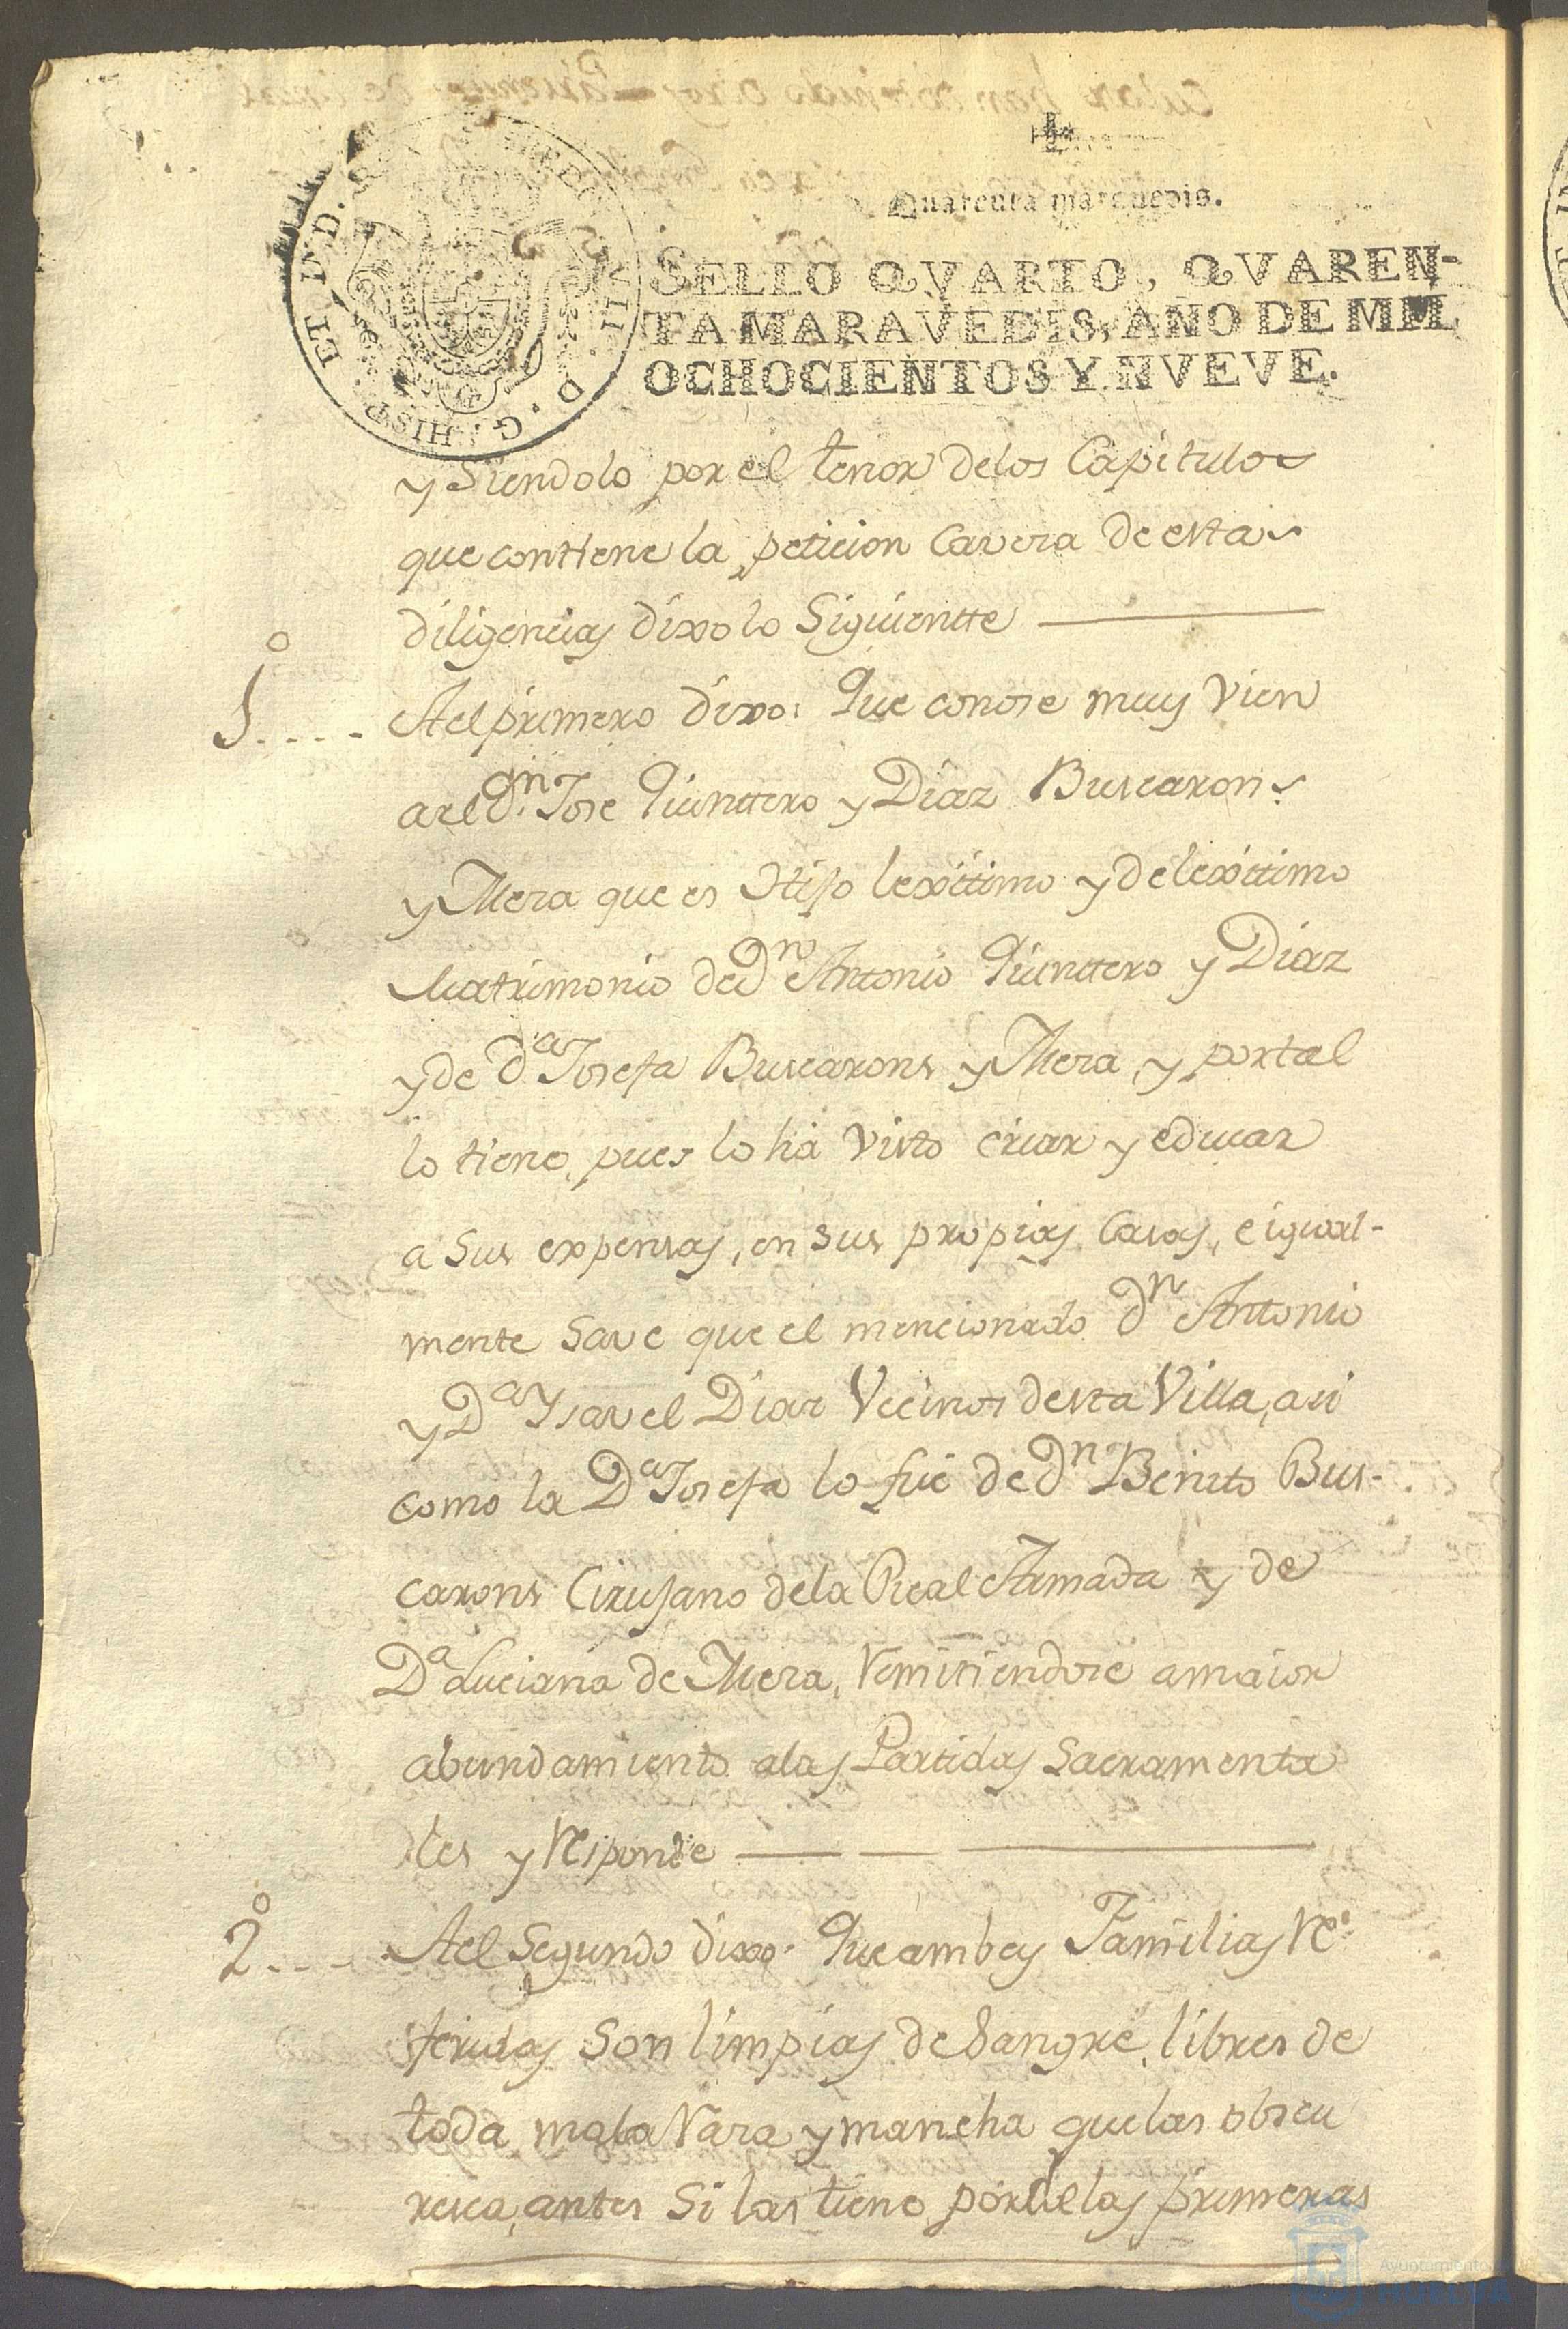 Quarenta maravedis.
SELLO QVARTO, QVAREN-
TA MARAVEDIS, AÑO DE MIL
OCHOCIENTOS Y NVEVE.
ET IND. D. G. HISP
y Siendolo por el tenor delos Capitulos
que contiene la peticion Cavera de estas
diligencias dixo lo Siguientte
1º.... Ael primero dixo: Que conose muy Vien
ael Dn. Jose Quinttero y Diaz Buscarons
y Mera que es Hijo lexittimo y de lexittimo
Matrimonio de Dn Antonio Quinttero y Diaz
y de Da Josefa Buscarons y Mera, y por tal
lo tiene, pues lo há visto criar y educar
a Sus expensas, en sus propias Casas, e igual-
mente Save que el mencionado Dn Antonio
y Da Ysavel Diaz Vecinos desta Villa, asi
como la Da Josefa lo fué de Dn Benito Bus-
carons Cirujano dela Real Armada y de
Da Luciana de Mera, remitiendose a maior
abundamiento alas Partidas Sacramenta
les y responde
2º.... Ael Segundo dixo: Que ambas Familias re-
feridas Son limpias de Sangre, libres de
toda mala rara y mancha que las obscu
resca, antes Si las tiene por de las primeras
Ayuntamiento
HUELVA